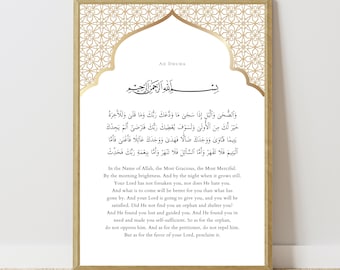 Ad Dhuha
بِسْمِ اللَّهِ الرَّحْمَنِ الرَّحِيمِ
وَالضُّحَى وَاللَّيْلِ إِذَا سَجَى مَا وَدَّعَكَ رَبُّكَ وَمَا قَلَى وَلَلْآخِرَةُ
خَيْرٌ لَكَ مِنَ الْأُولَى وَلَسَوْفَ يُعْطِيكَ رَبُّكَ فَتَرْضَى أَلَمْ يَجِدْكَ
يَتِيمًا فَآوَى وَوَجَدَكَ ضَالًّا فَهَدَى وَوَجَدَكَ عَائِلًا فَأَغْنَى فَأَمَّا
الْيَتِيمَ فَلَا تَقْهَرْ وَأَمَّا السَّائِلَ فَلَا تَنْهَرْ وَأَمَّا بِنِعْمَةِ رَبِّكَ فَحَدِّثْ
In the Name of Allah, the Most Gracious, the Most Merciful.
By the morning brightness. And by the night when it grows still.
Your Lord has not forsaken you, nor does He hate you.
And what is to come will be better for you than what has
gone by. And your Lord is going to give you, and you will be
satisfied. Did He not find you an orphan and shelter you?
And He found you lost and guided you. And He found you in
need and made you self-sufficient. So as for the orphan,
do not oppress him. And as for the petitioner, do not repel him.
But as for the favor of your Lord, proclaim it.